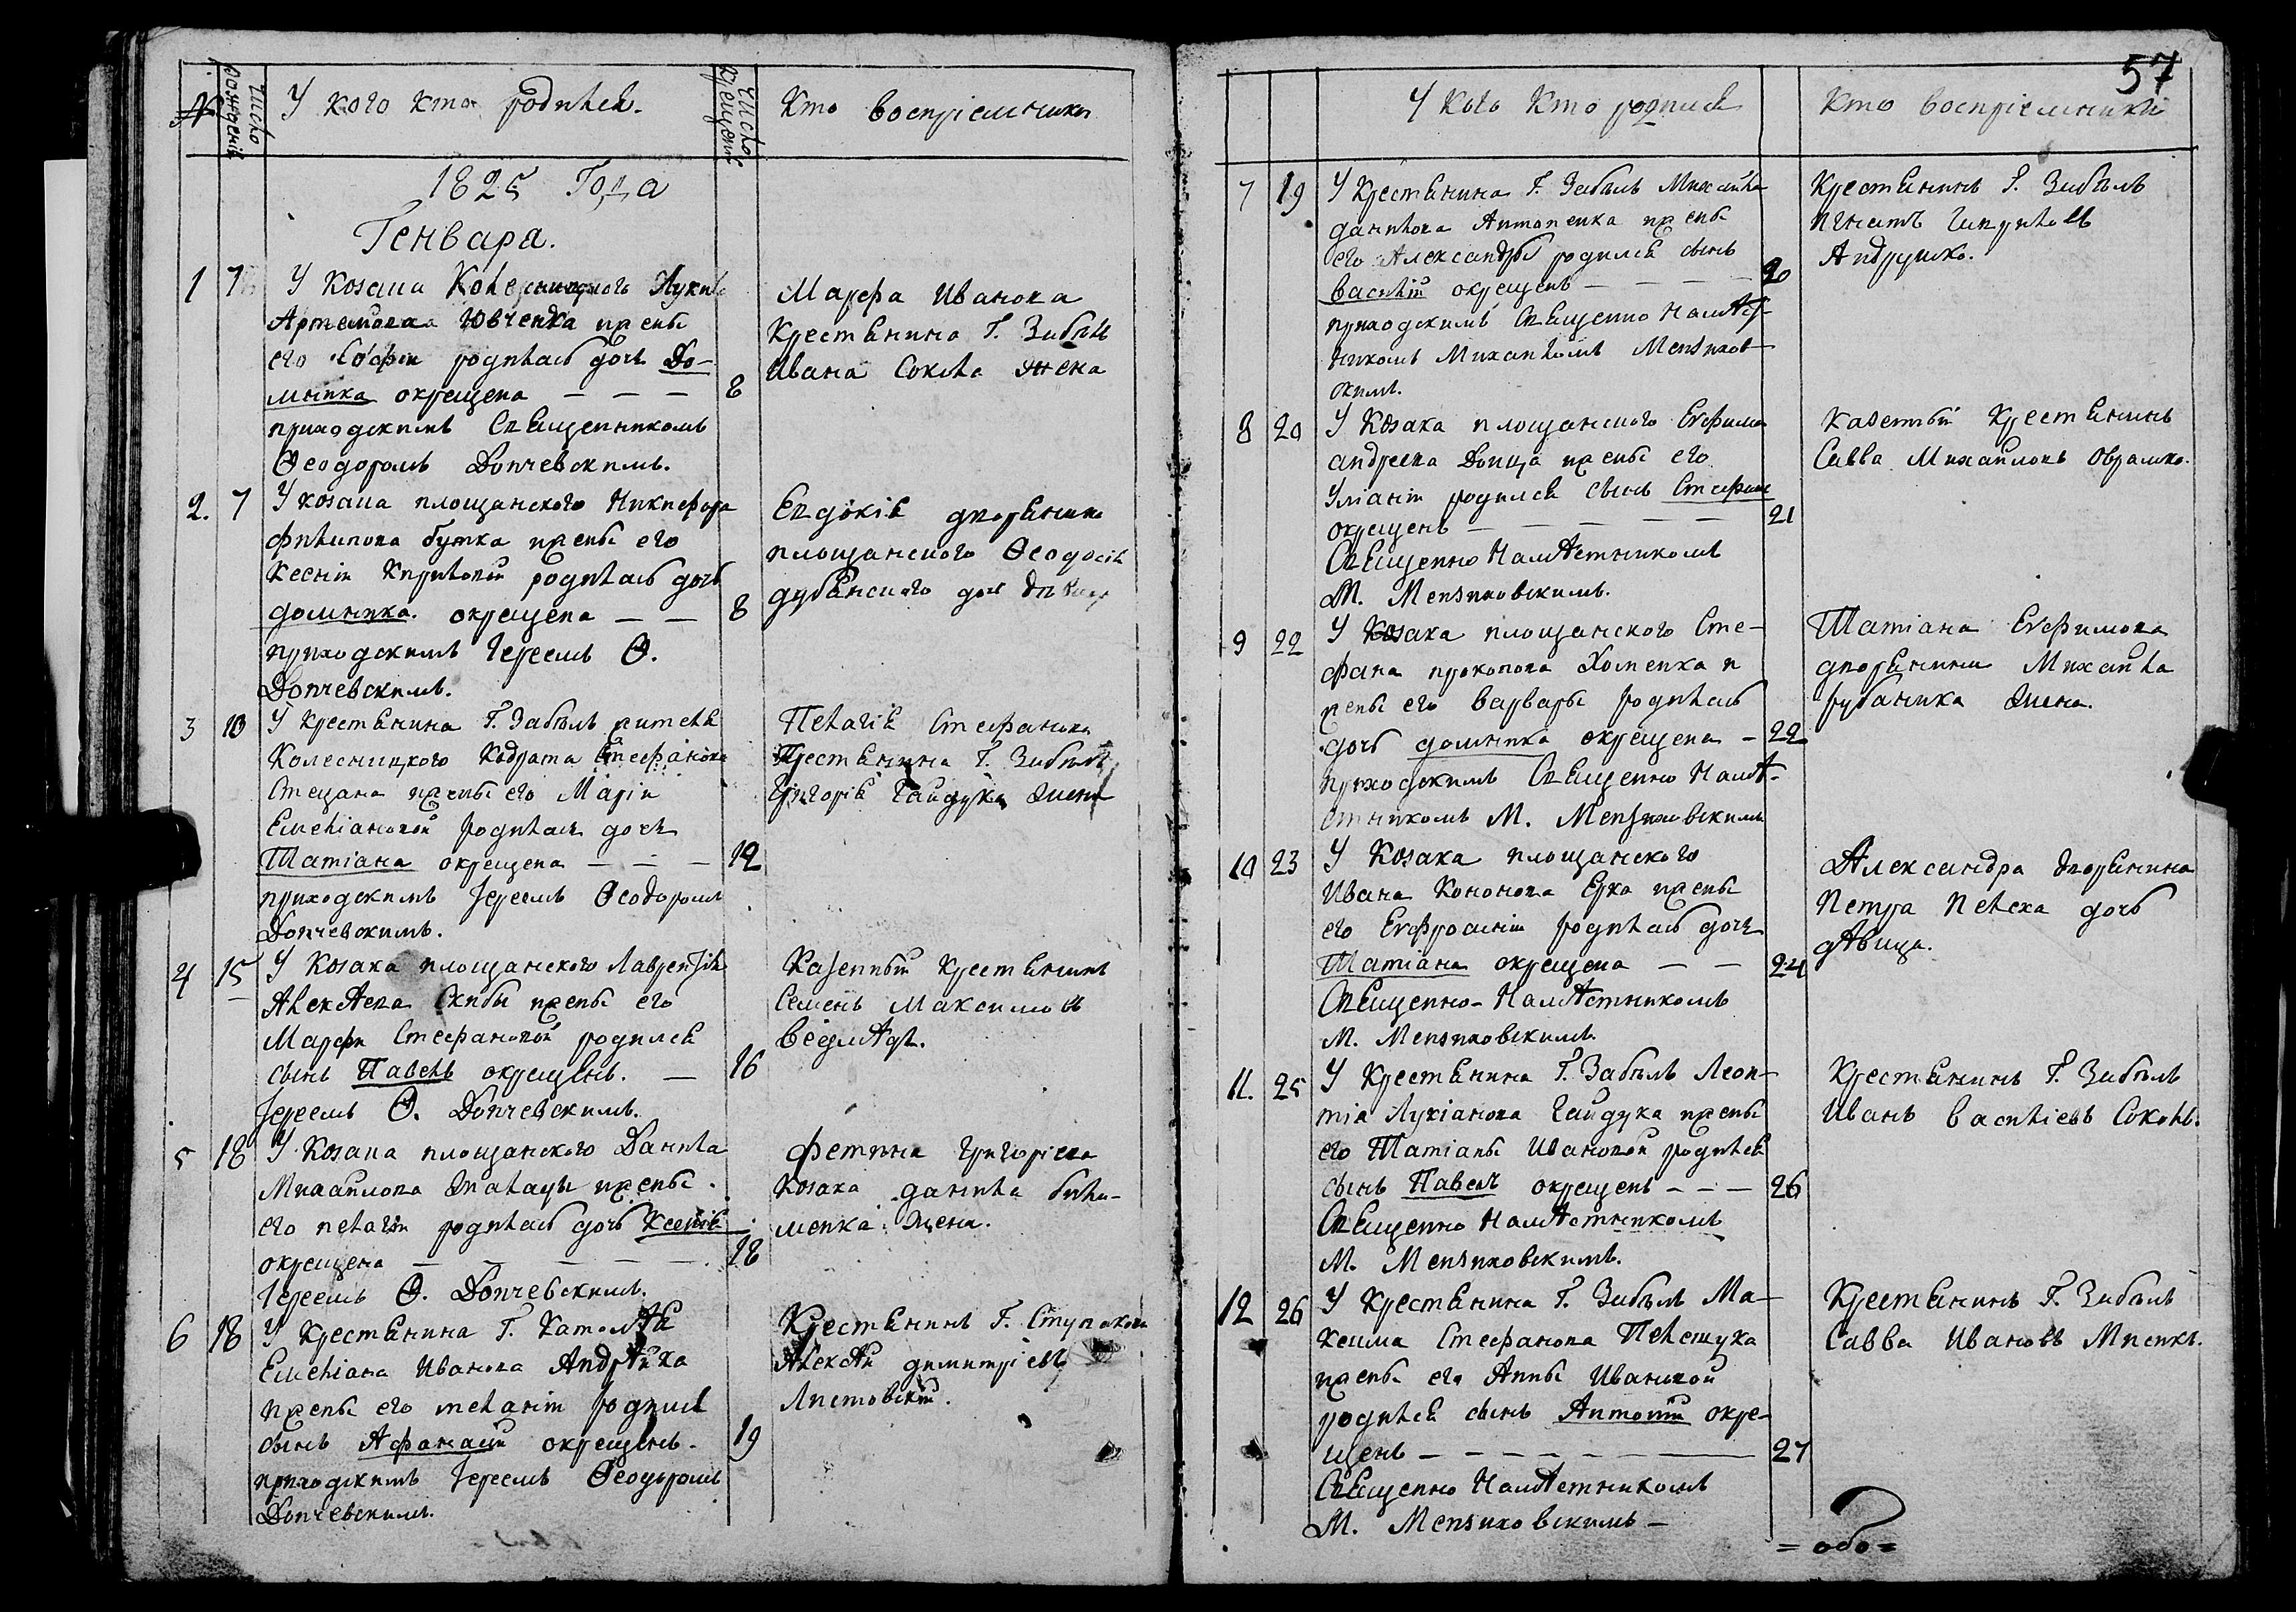 57
№
Число рожденія
У кого кто родился.
Число крещенія
Кто воспріемники
1825 Года
Генваря.
1 7 У Козака Колесницкого Луки
Артемова Ювченка и жены
его Софіи родилась дочь До-
мникіа окрещена — — — 8
приходскимъ Священникомъ
Ѳеодоромъ Дончевскимъ.
Марфа Иванова
Крестьянина Г. Забѣлъ
Ивана Сокола жена
2. 7 У козака площанского Никифора
Филипова бутка и жены его
Ксеніи Кириловой родилась дочь
домникіа. окрещена — — 8
приходскимъ Іереемъ Ѳ.
Дончевскимъ.
Евдокія дворянина
площанского Ѳеодосія
дубянского дочь
3 10 У крестьянина Г. Забѣлъ жителя
Колесницкого Кодрата Стефанова
Стецана и жены его Маріи
Емеліановой родилась дочь
Татіана окрещена — — — 12
приходскимъ Іереемъ Ѳеодоромъ
Дончевскимъ.
Пелагія Стефанова
Крестьянина Г. Забѣлъ
Григорія Гайдука жена
4 15 У Козака площанского Лаврентія
Алексѣева Скибы и жены его
Марфы Стефановой родился
сынъ Павелъ окрещенъ. — 16
Іереемъ Ѳ. Дончевскимъ.
Казенный Крестьянинъ
Семенъ Максимовъ
Ведмѣдь.
5 18 У Козака площанского Данила
Михайлова и жены
его пелагіи родилась дочь Ксенія
окрещена — — — — — 18
Іереемъ Ѳ. Дончевскимъ.
Фетинія Григоріева
Козака данила били-
менка жена.
6 18 У Крестьянина Г.
Емеліана Иванова Андрѣйка
и жены его меланіи родился
сынъ Афанасій окрещенъ. 19
приходскимъ Іереемъ Ѳеодоромъ
Дончевскимъ.
Крестьянинъ Г. Ступакова
Алексѣй димитріевъ
Листовскій.
У кого кто родился
Кто воспріемники
7 19 У Крестьянина Г. Забѣлъ Михайла
данилова Антоненка и жены
его Александры родился сынъ
василій окрещенъ — — — 20
приходскимъ Священно Намѣст-
никомъ Михаиломъ Мензиков-
скимъ.
Крестьянинъ Г. Забѣлъ
Игнатъ Гавриловъ
Андрушко.
8 20 У Козака площанского Евфима
андреева Донца и жены его
Уліаніи родился сынъ Стефанъ
окрещенъ — — — — — 21
Священно Намѣстникомъ
М. Мензиковскимъ.
Казенный Крестьянинъ
Савва Михайловъ Овралко.
9 22 У Козака площанского Сте-
фана прокопова Хоменка и
жены его варвары родилась
дочь домникіа окрещена — 22
приходскимъ Священно Намѣ-
стникомъ М. Мензиковскимъ
Татіана Евфимова
дворянина Михайла
рубаника жена.
10 23 У Козака площанского
Ивана Кононова Ерка и жены
его Евфросиніи родилась дочь
Татіана окрещена — — 24
Священно-Намѣстникомъ
М. Мензиковскимъ.
Александра дворянина
Петра Пелеха дочь
дѣвица.
11. 25 У Крестьянина Г. Забѣлъ Леон-
тія Лукіанова Гайдука и жены
его Татіаны Ивановой родился
сынъ Павелъ окрещенъ — — — 26
Священно Намѣстникомъ
М. Мензиковскимъ.
Крестьянинъ Г. Забѣлъ
Иванъ Василіевъ Соколъ.
12 26 У Крестьянина Г. Забѣлъ Ма-
ксима Стефанова Пелешука
и жены его Анны Ивановой
родился сынъ Антоній окре-
щенъ — — — — — — 27
Священно Намѣстникомъ
М. Мензиковскимъ —
Крестьянинъ Г. Забѣлъ
Савва Ивановъ Мисикъ.
= обо =